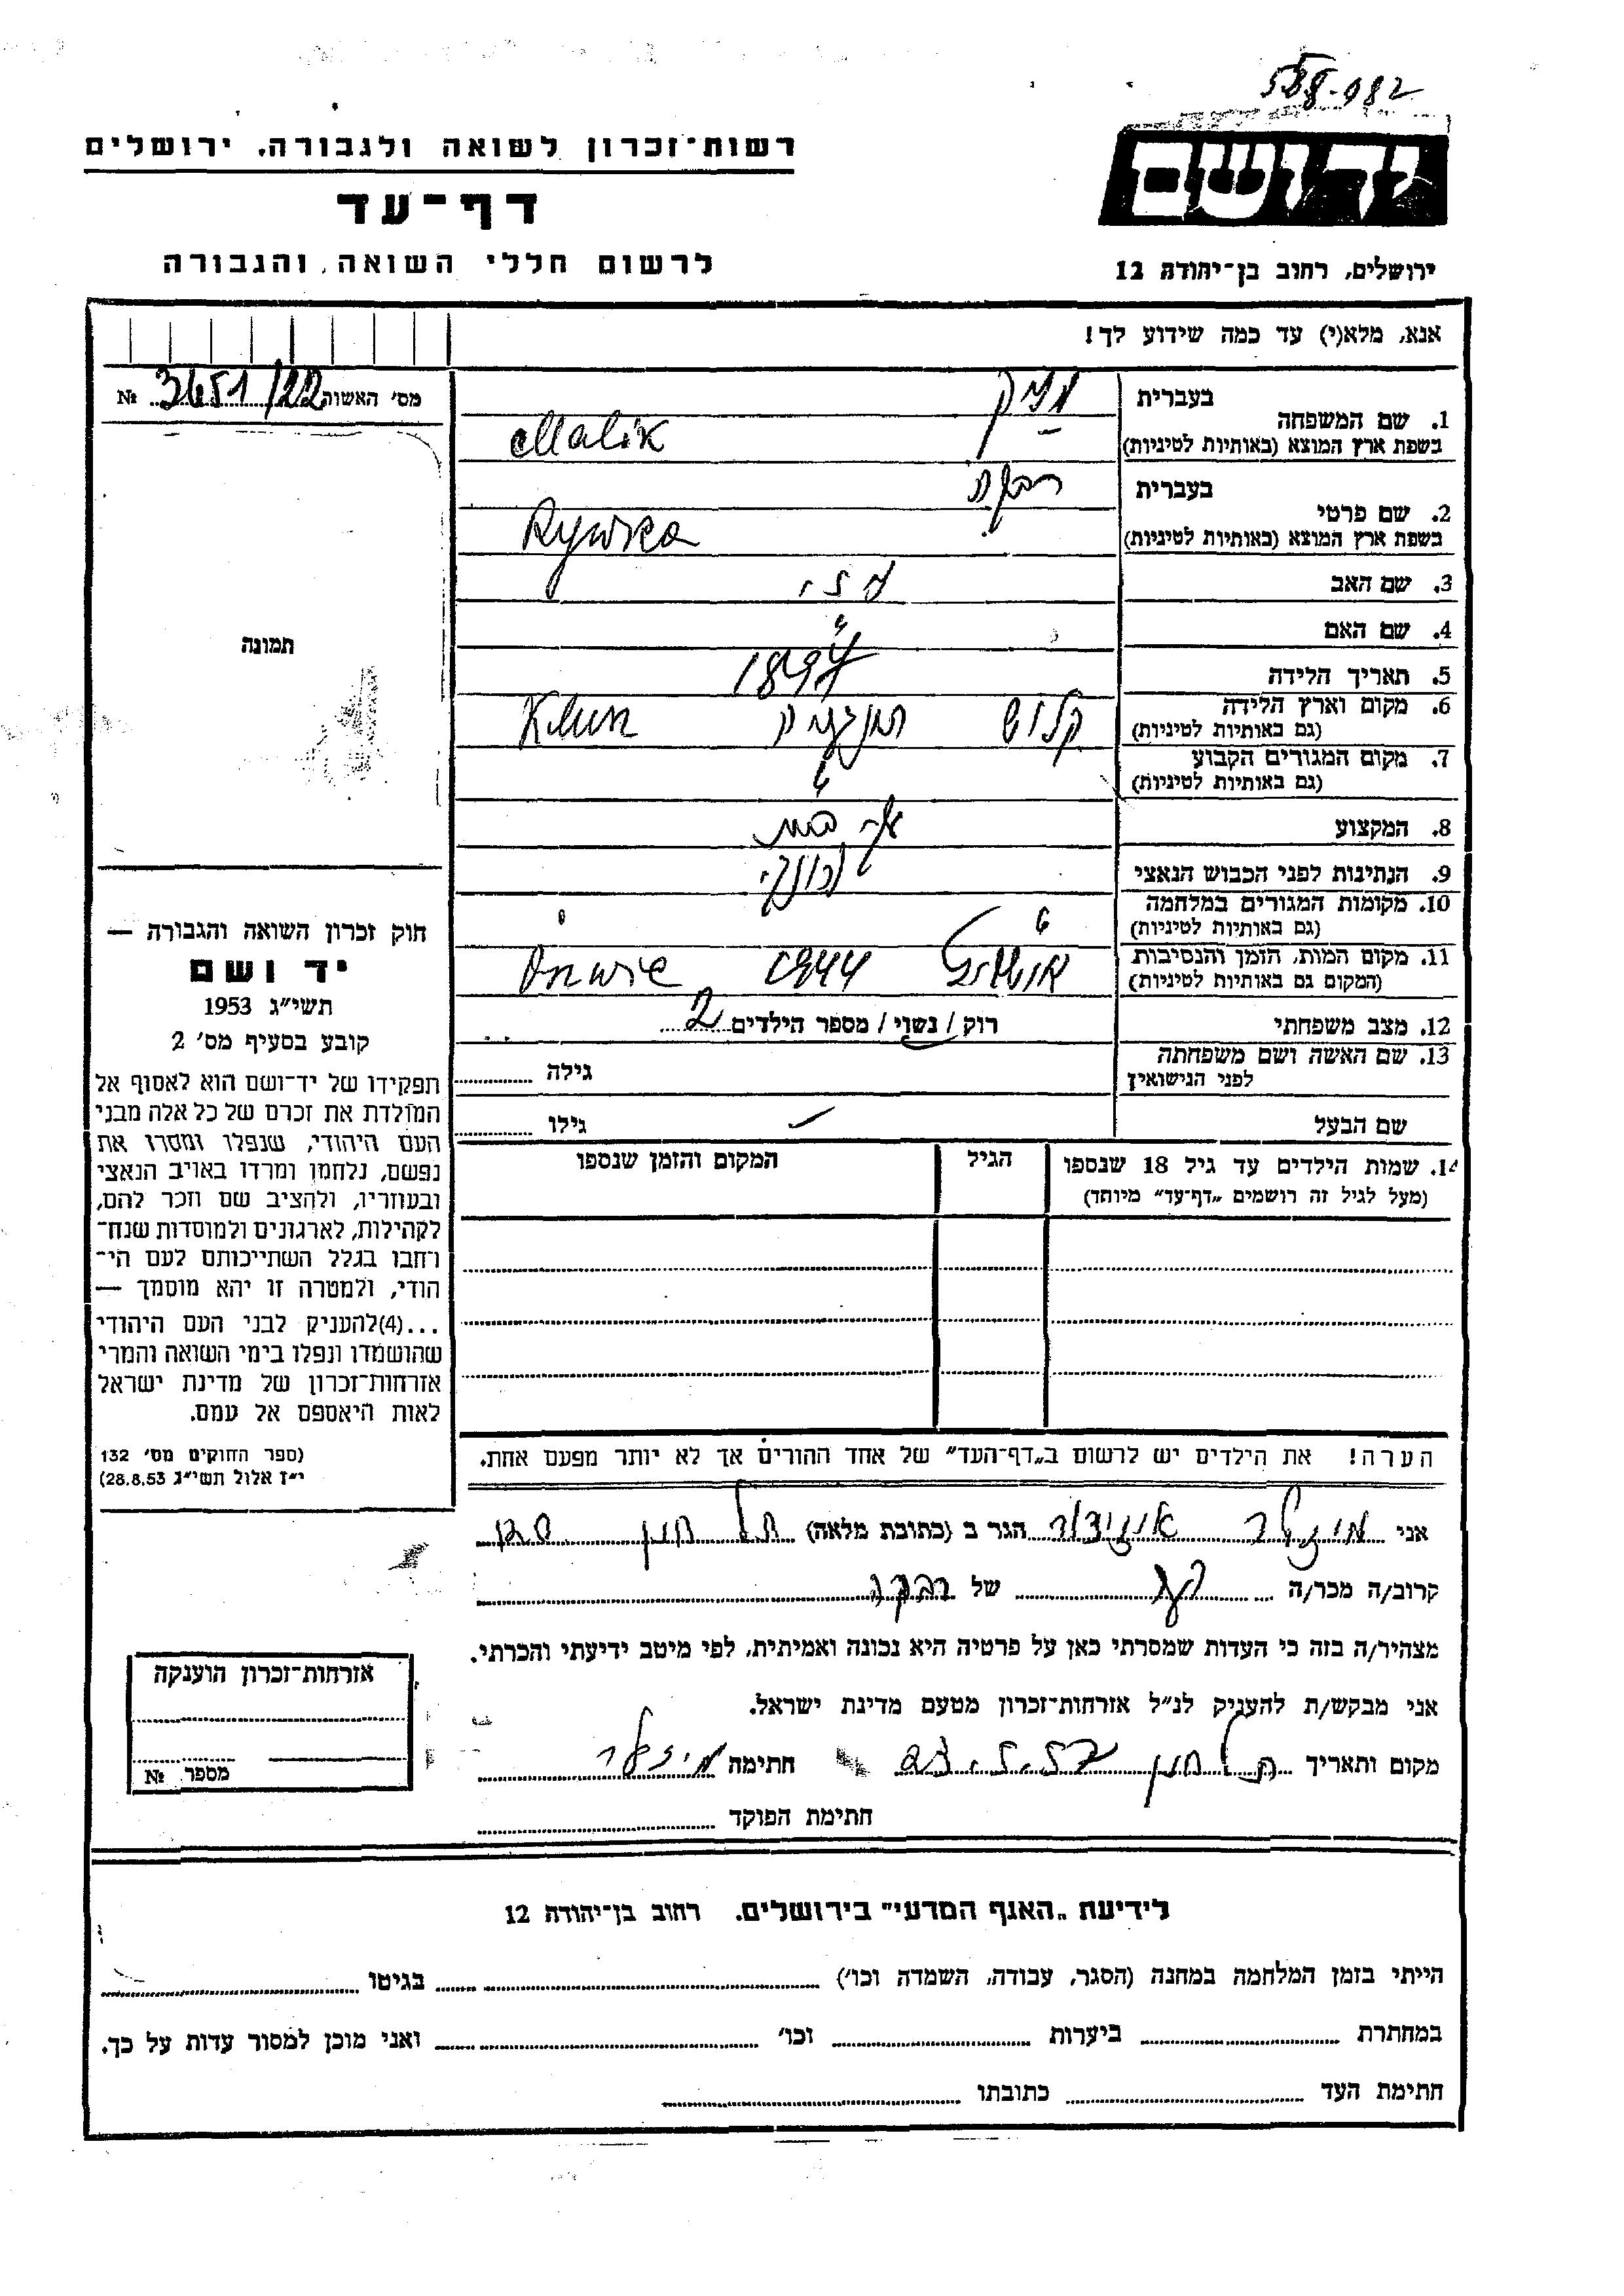 588-982
רשות־זכרון לשואה ולגבורה, ירושלים
דף־עד
לרשום חללי השואה והגבורה
יד ושם
ירושלים, רחוב בן־יהודה 12
אנא, מלא(י) עד כמה שידוע לך!
מס׳ האשוה 3651/22 №
תמונה
1. שם המשפחה
בעברית
בשפת ארץ המוצא (באותיות לטיניות) Malik
2. שם פרטי
בעברית רבקה
בשפת ארץ המוצא (באותיות לטיניות) Rywka
3. שם האב
4. שם האם ?
5. תאריך הלידה 1897
6. מקום וארץ הלידה
(גם באותיות לטיניות)
7. מקום המגורים הקבוע
(גם באותיות לטיניות) ?
8. המקצוע
9. הנתינות לפני הכבוש הנאצי
10. מקומות המגורים במלחמה
(גם באותיות לטיניות) ?
11. מקום המות, הזמן והנסיבות
(המקום גם באותיות לטיניות) 1944
12. מצב משפחתי רוק / נשוי / מספר הילדים 2
13. שם האשה ושם משפחתה
לפני הנישואין
גילה
שם הבעל
גילו
14. שמות הילדים עד גיל 18 שנספו
(מעל לגיל זה רושמים „דף־עד” מיוחד)
הגיל
המקום והזמן שנספו
חוק זכרון השואה והגבורה —
יד ושם
תשי״ג 1953
קובע בסעיף מס׳ 2
תפקידו של יד־ושם הוא לאסוף אל
המולדת את זכרם של כל אלה מבני
העם היהודי, שנפלו ומסרו את
נפשם, נלחמו ומרדו באויב הנאצי
ובעוזריו, ולהציב שם וזכר להם,
לקהילות, לארגונים ולמוסדות שנח־
רחבו בגלל השתייכותם לעם הי־
הודי, ולמטרה זו יהא מוסמך —
...(4)להעניק לבני העם היהודי
שהושמדו ונפלו בימי השואה והמרי
אזרחות־זכרון של מדינת ישראל
לאות היאספם אל עמם.
(ספר החוקים מס׳ 132
י״ז אלול תשי״ג 28.8.53)
הערה! את הילדים יש לרשום ב„דף־העד” של אחד ההורים אך לא יותר מפעם אחת.
אני
הגר ב (כתובת מלאה)
קרוב/ה מכר/ה
של רבקה
מצהיר/ה בזה כי העדות שמסרתי כאן על פרטיה היא נכונה ואמיתית, לפי מיטב ידיעתי והכרתי.
אני מבקש/ת להעניק לנ״ל אזרחות־זכרון מטעם מדינת ישראל.
מקום ותאריך
חתימה
חתימת הפוקד
אזרחות־זכרון הוענקה
מספר №
לידיעת „האגף המדעי” בירושלים, רחוב בן־יהודה 12
הייתי בזמן המלחמה במחנה (הסגר, עבודה, השמדה וכו׳)
בגיטו
במחתרת
ביערות
וכו׳
ואני מוכן למסור עדות על כך.
חתימת העד
כתובתו